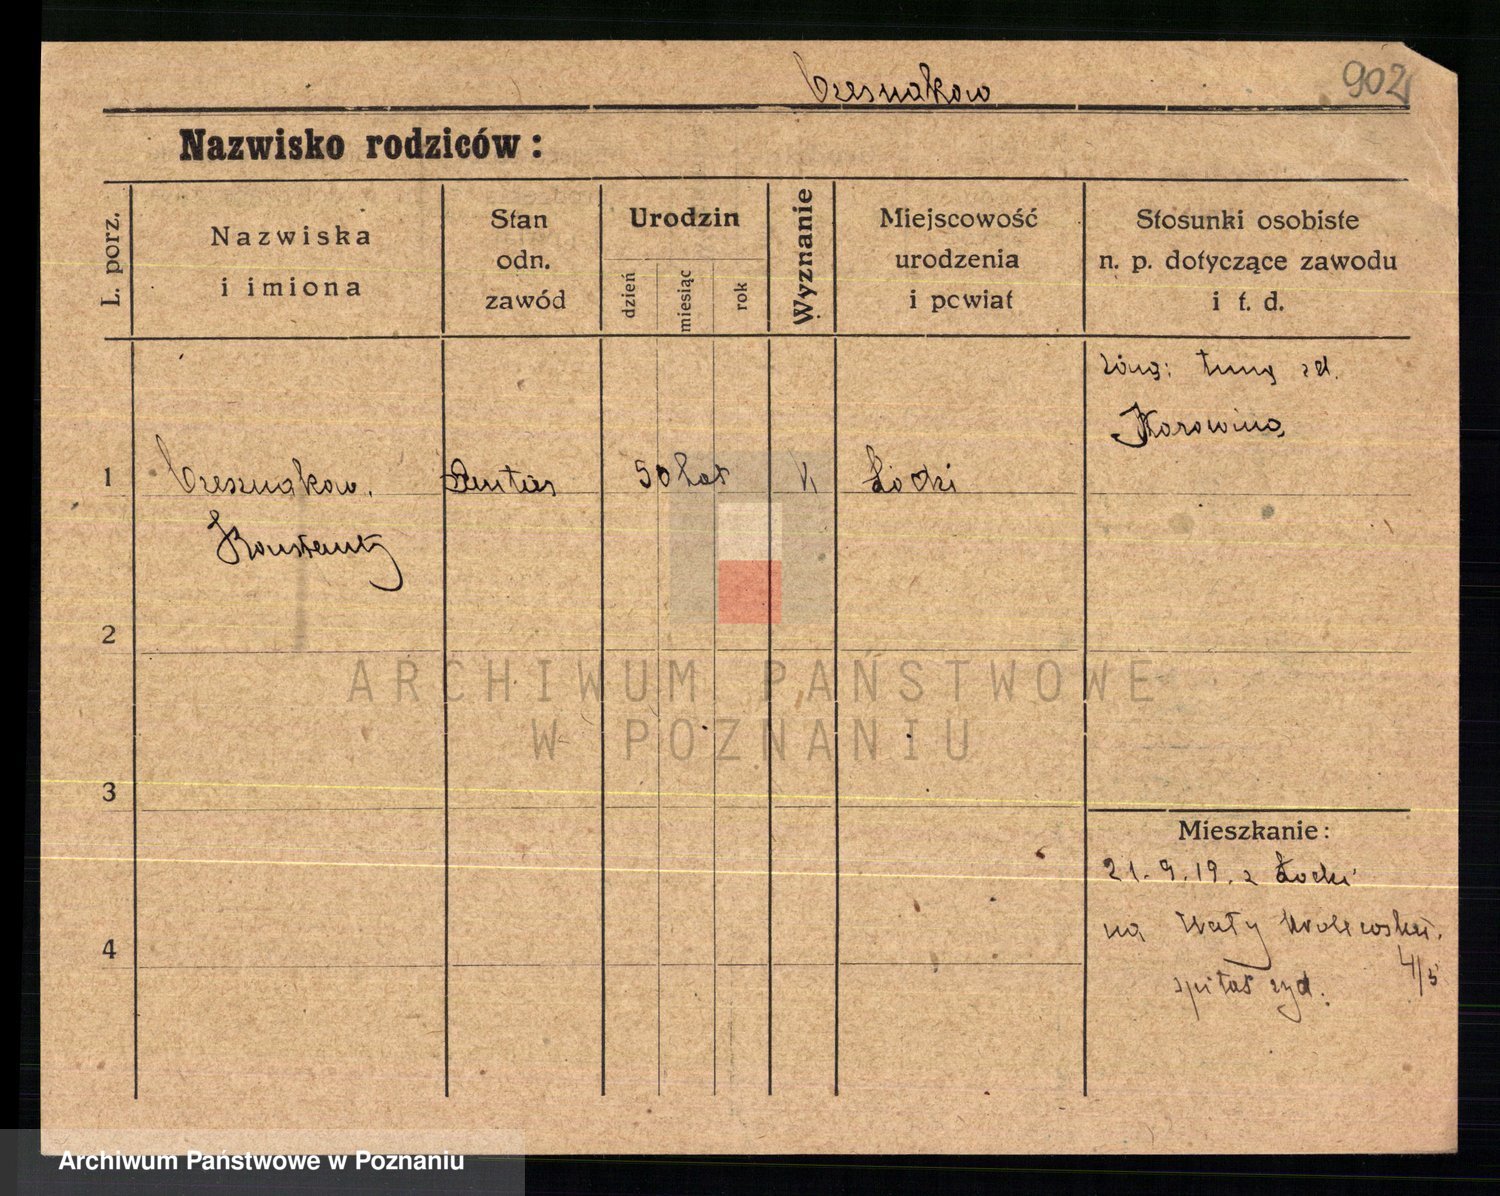 Czesnakow
902
Nazwisko rodziców:
L. porz.
Nazwiska
i imiona
Stan
odn.
zawód
Urodzin
dzień
miesiąc
rok
Wyznanie
Miejscowość
urodzenia
i pcwiat
Stosunki osobiste
n. p. dotyczące zawodu
i t. d.
żona:
1
Czesnakow.
50 lat
Łodzi
Konstanty
2
3
4
Mieszkanie:
21.9.19. z Łodzi
na Wały Krolewskie.
4/5
szpital żyd.
ARCHIWUM PAŃSTWOWE
W POZNANIU
Archiwum Państwowe w Poznaniu